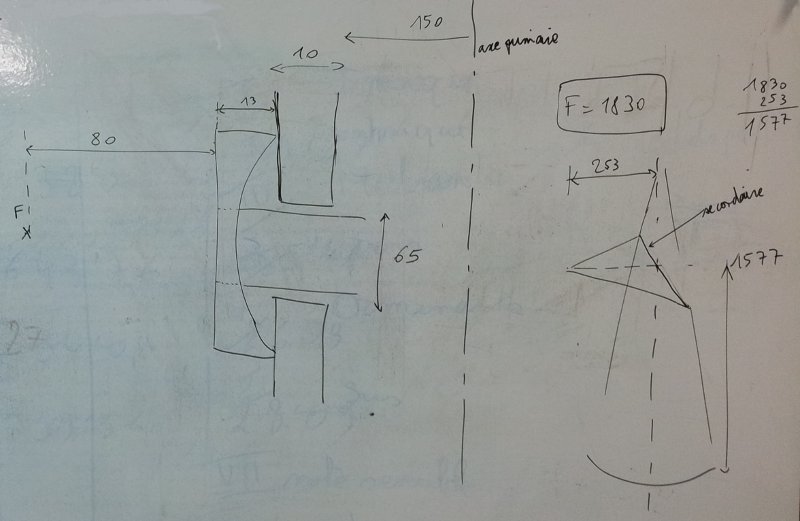 150
axe primaire
10
13
80
F
65
F = 1830
1830
253
1577
253
secondaire
1577
27